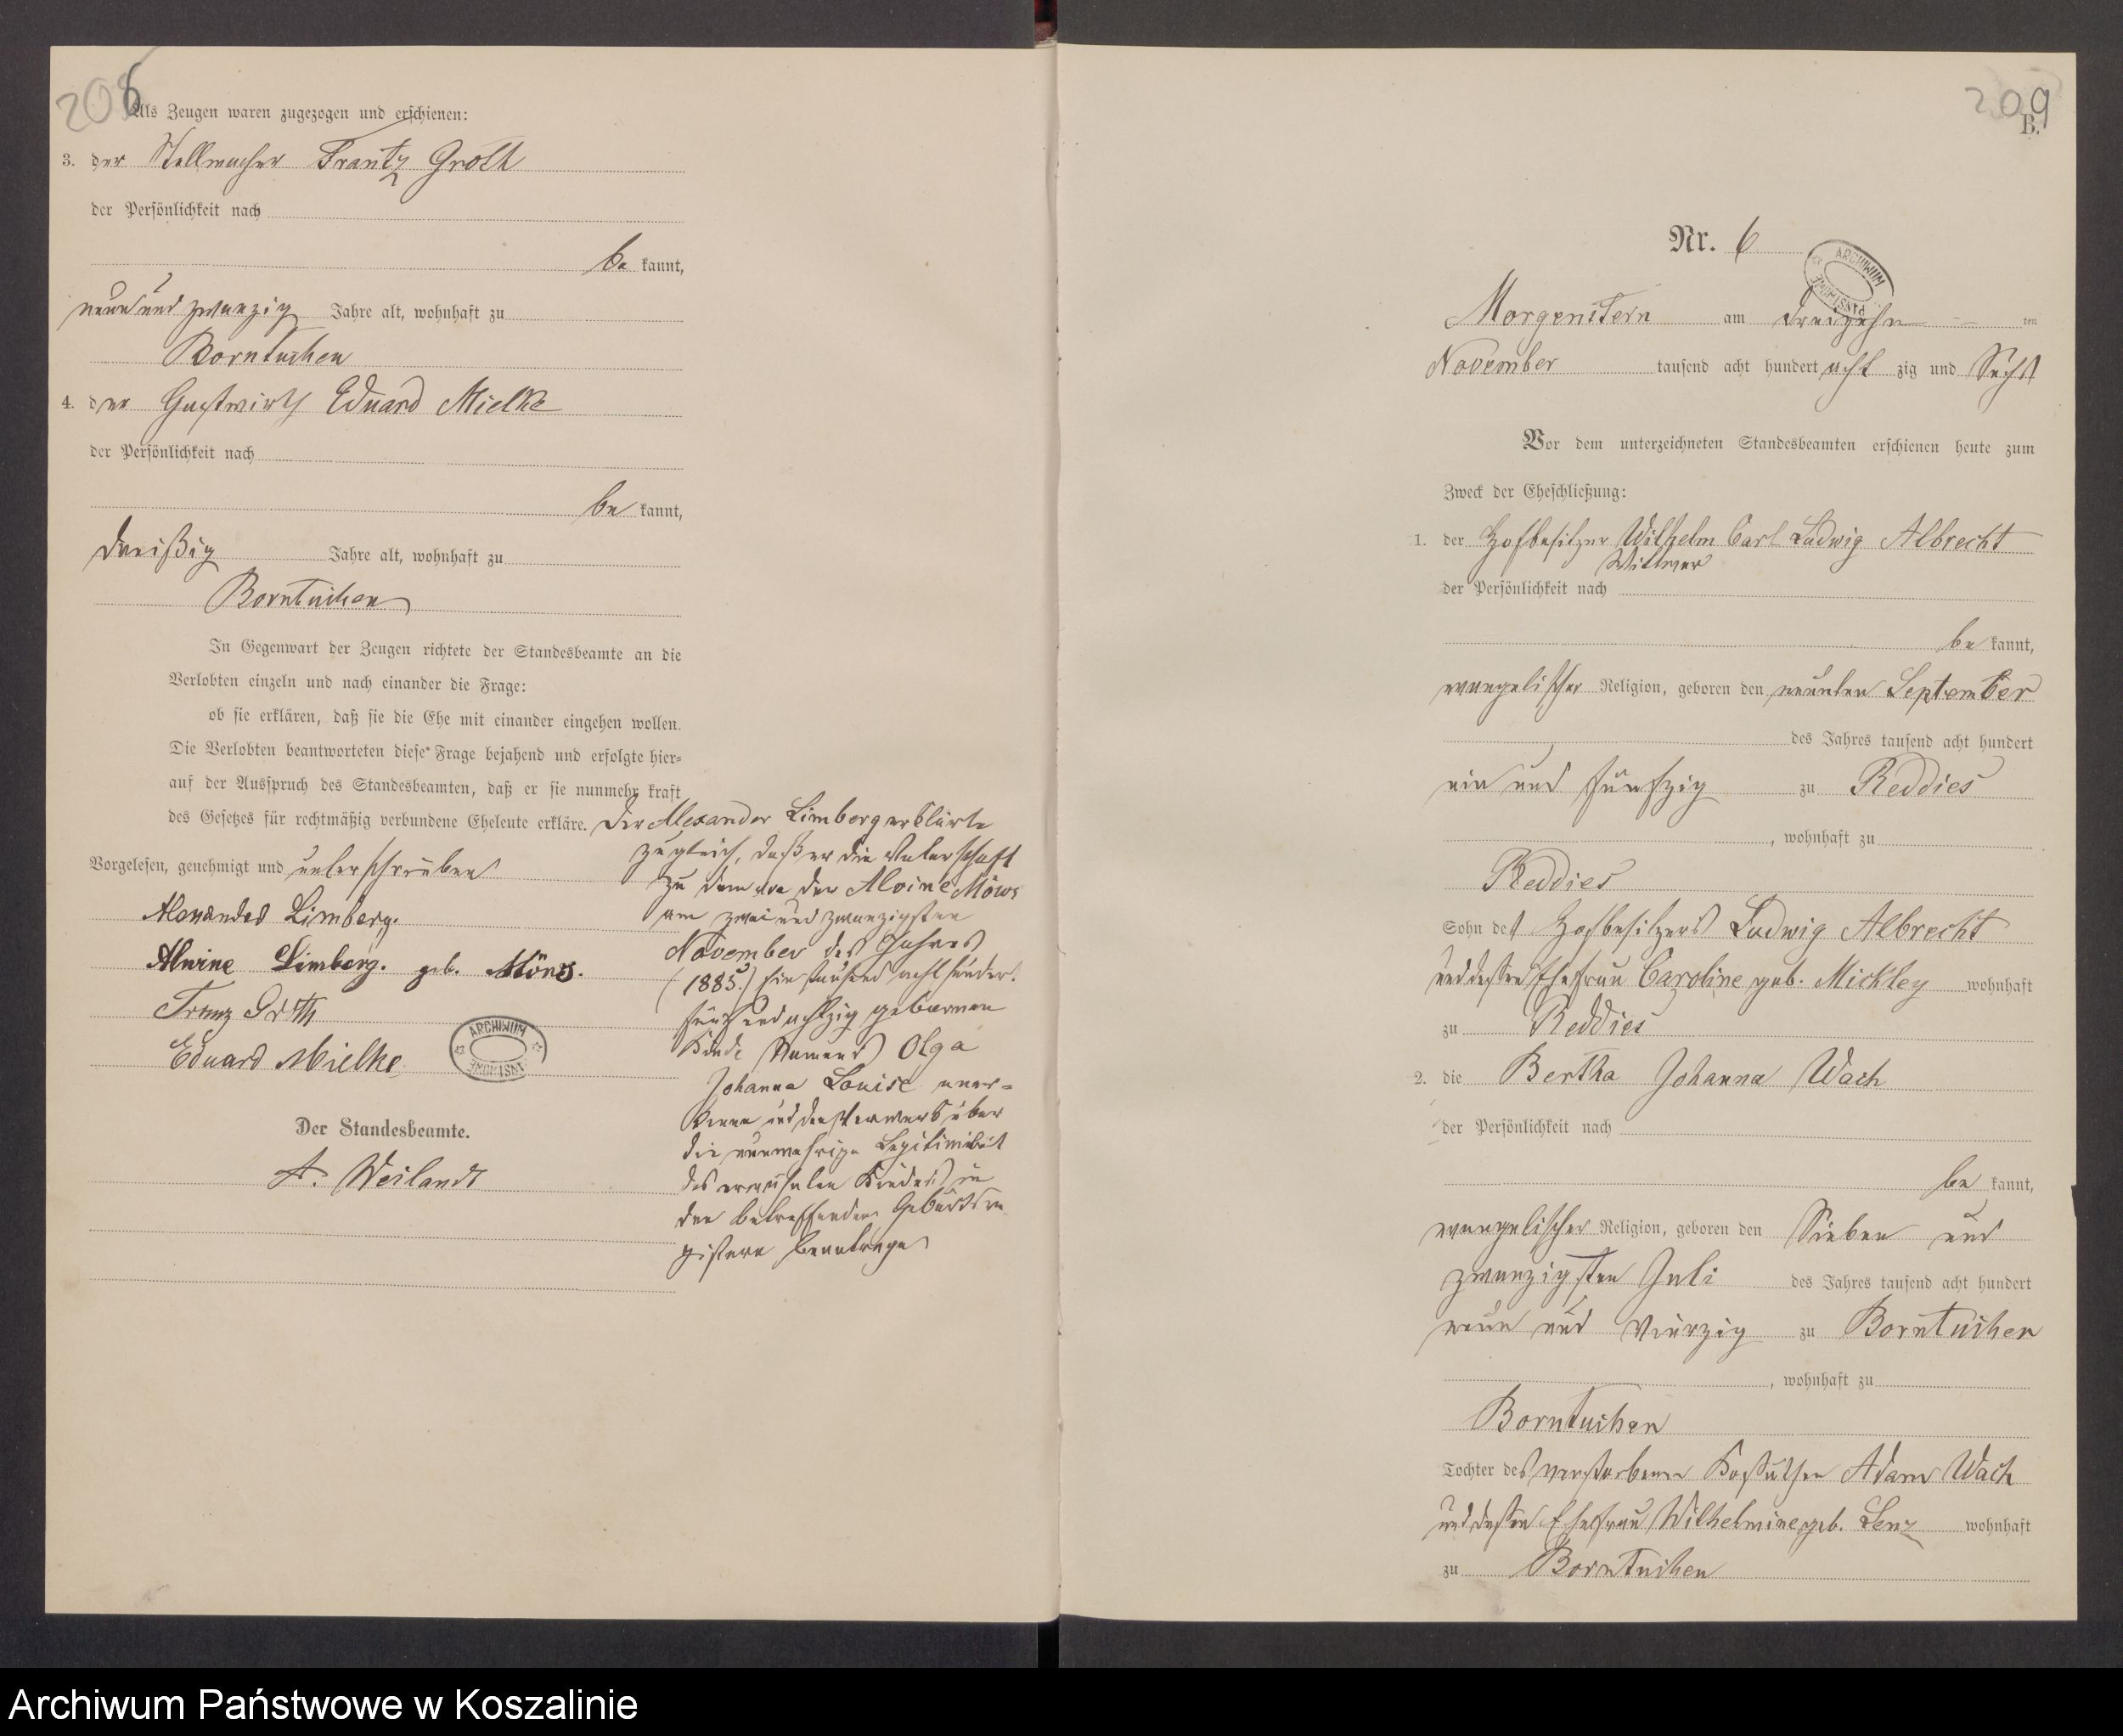 208
Als Zeugen waren zugezogen und erschienen:
3. der Stellmacher Frantz Groth
der Persönlichkeit nach
be kannt,
neun und zwanzig Jahre alt, wohnhaft zu
Borntuchen
4. der Gastwirth Eduard Mielke
der Persönlichkeit nach
be kannt,
dreißig Jahre alt, wohnhaft zu
Borntuchen
In Gegenwart der Zeugen richtete der Standesbeamte an die
Verlobten einzeln und nach einander die Frage:
ob sie erklären, daß sie die Ehe mit einander eingehen wollen.
Die Verlobten beantworteten diese Frage bejahend und erfolgte hier-
auf der Ausspruch des Standesbeamten, daß er sie nunmehr kraft
des Gesetzes für rechtmäßig verbundene Eheleute erkläre. Der Alexander Limberg erklärte
zugleich, daß er die Vaterschaft
zu dem von der Alvine Möws
am zwei und zwanzigsten
November des Jahres
(1885.) Ein tausend acht hundert
fünf und achtzig geborenen
Kinde Namens Olga
Johanna Louise aner-
kenne und den Vermerk über
die nunmehrige Legitimität
des erwähnten Kindes in
den betreffenden Geburtsre
gistern beantrage
Vorgelesen, genehmigt und unterschrieben
Alexander Limberg.
Alwine Limberg. geb. Möws.
Franz Groth
Eduard Mielke
ARCHIWUM
Der Standesbeamte.
A. Weilandt
209
B.
Nr. 6
ARCHIWUM
Morgenstern am dreizehn ten
November tausend acht hundert acht zig und Sechs
Vor dem unterzeichneten Standesbeamten erschienen heute zum
Zweck der Eheschließung:
1. der Hofbesitzer Wilhelm Carl Ludwig Albrecht
Wittwer
der Persönlichkeit nach
be kannt,
evangelischer Religion, geboren den neunten September
des Jahres tausend acht hundert
ein und fünfzig zu Reddies
, wohnhaft zu
Reddies
Sohn des Hofbesitzers Ludwig Albrecht
und dessen Ehefrau Caroline geb. Mickley wohnhaft
zu Reddies
2. die Bertha Johanna Wach
der Persönlichkeit nach
be kannt,
evangelischer Religion, geboren den Sieben und
zwanzigsten Juli des Jahres tausend acht hundert
neun und vierzig zu Borntuchen
, wohnhaft zu
Borntuchen
Tochter des verstorbenen Kossäthen Adam Wach
und dessen Ehefrau Wilhelmine geb. Lenz wohnhaft
zu Borntuchen
Archiwum Państwowe w Koszalinie